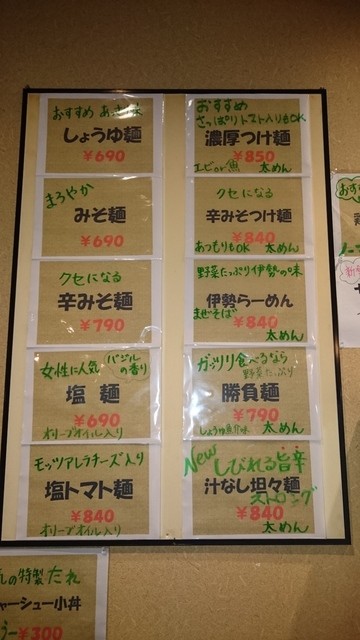 おすすめ あっさり味
しょうゆ麺
¥690
まろやか
みそ麺
¥690
クセになる
辛みそ麺
¥790
女性に人気 バジルの香り
塩 麺
¥690
オリーブオイル入り
モッツアレラチーズ入り
塩トマト麺
¥840
オリーブオイル入り
おすすめ
さっぱりトマト入りもOK
濃厚つけ麺
¥850
エビor魚 太めん
クセになる
辛みそつけ麺
¥840
あつもりもOK 太めん
野菜たっぷり伊勢の味
伊勢らーめん
まぜそば
¥840
太めん
ガッツリ食べるなら
野菜たっぷり
勝負麺
¥790
しょうゆ魚介味 太めん
New しびれる旨辛
汁なし坦々麺
ストロング
¥840
太めん
の特製たれ
ャーシュー小丼
¥300